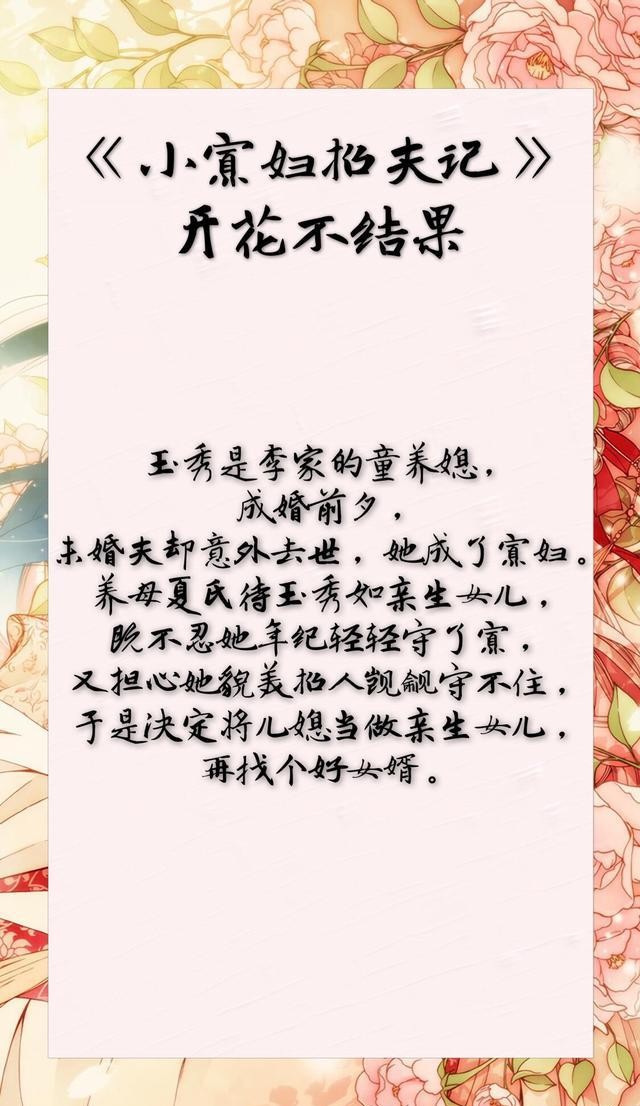 《小寡妇招夫记》
开花不结果
玉秀是李家的童养媳，
成婚前夕，
未婚夫却意外去世，她成了寡妇。
养母夏氏待玉秀如亲生女儿，
既不忍她年纪轻轻守了寡，
又担心她貌美招人觊觎守不住，
于是决定将儿媳当做亲生女儿，
再找个好女婿。